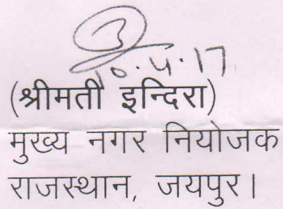 10.4.17
(श्रीमती इन्दिरा)
मुख्य नगर नियोजक
राजस्थान, जयपुर।